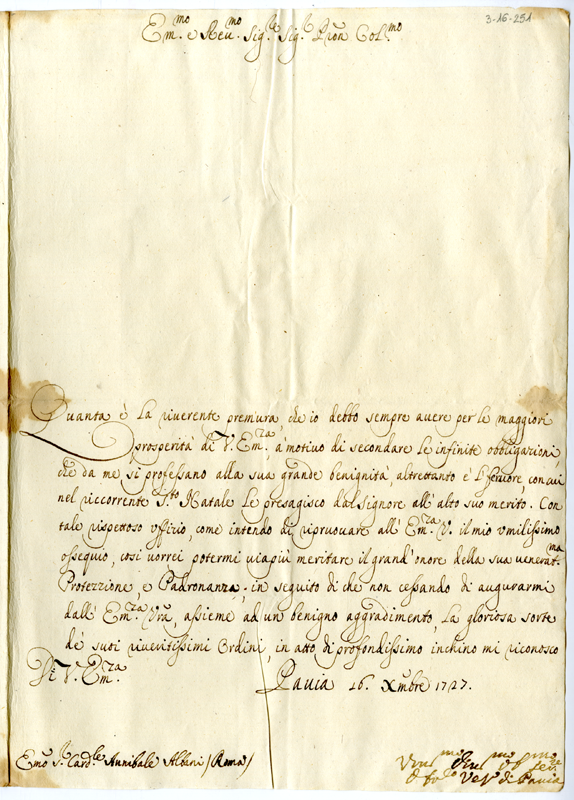 3-16-251
Em.mo e Rev.mo Sig.r Sig.r Pron Col.mo
Quanta è la riverente premura, che io debbo sempre avere per le maggiori
prosperità di V. Em.za, a' motivo di secondare le infinite obbligazioni,
che da me si professano alla sua grande benignità, altrettanto è il fervore, con cui
nel riccorrente S.to Natale Le presagisco dal Signore all' alto suo merito. Con
tale rispettoso uffizio, come intendo di ripruovare all' Em.za V. il mio umilissimo
ossequio, così vorrei potermi viapiù meritare il grand' onore della sua venerat.ma
Protezzione, e Padronanza; in seguito di che non cessando di augurarmi
dall' Em.za Vra, assieme ad un benigno aggradimento, la gloriosa sorte
de' suoi riveritissimi Ordini, in atto di profondissimo inchino mi riconosco
Di V. Em.za
Pavia 16. Xmbre 1727.
Emo S.r Card.le Annibale Albani (Roma)
Um.mo Dev.mo Ob.mo Ser.re
Ves.o di Pavia